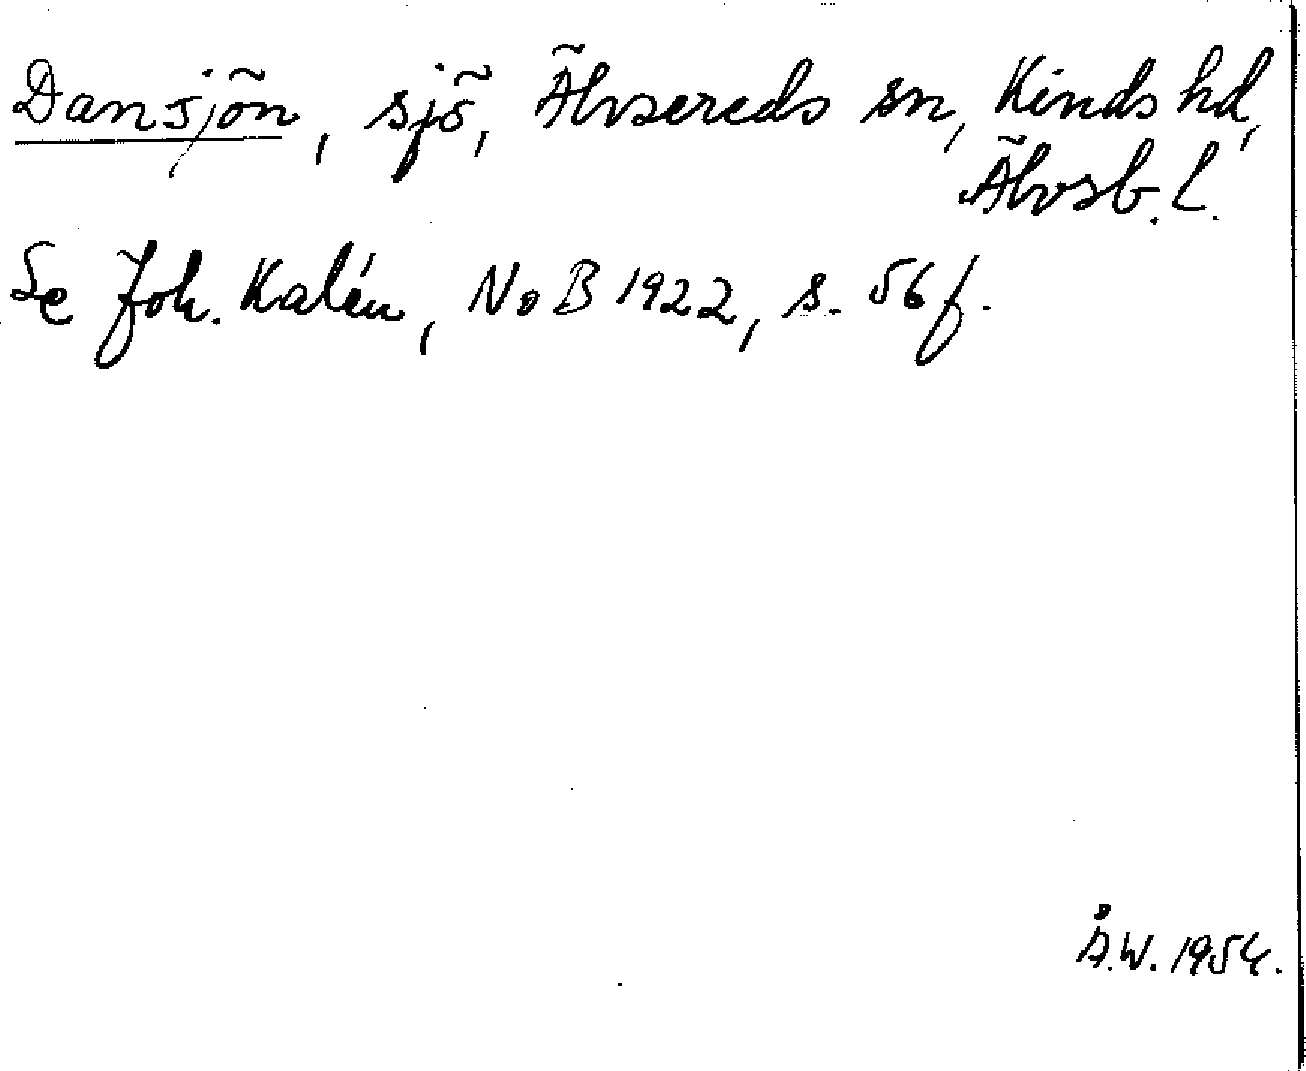 Dansjön, sjö, Älvsereds sn, Kinds hd,
Älvsb. l.
Se Joh. Kalén, NoB 1922, s. 56 f.
Å.W. 1954.